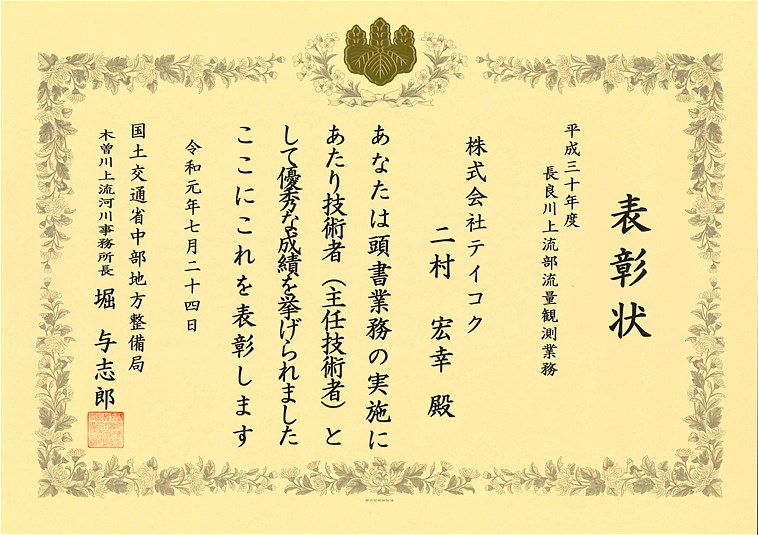 表彰状
平成三十年度
長良川上流部流量観測業務
株式会社テイコク
二村 宏幸 殿
あなたは頭書業務の実施に
あたり技術者（主任技術者）と
して優秀な成績を挙げられました
ここにこれを表彰します
令和元年七月二十四日
国土交通省中部地方整備局
木曽川上流河川事務所長 堀 与志郎